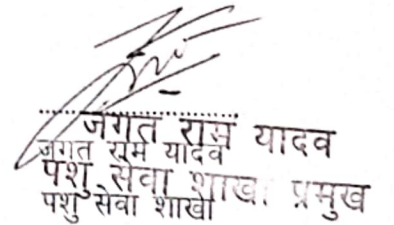 जगत राम यादव
जगत राम यादव
पशु सेवा शाखा प्रमुख
पशु सेवा शाखा